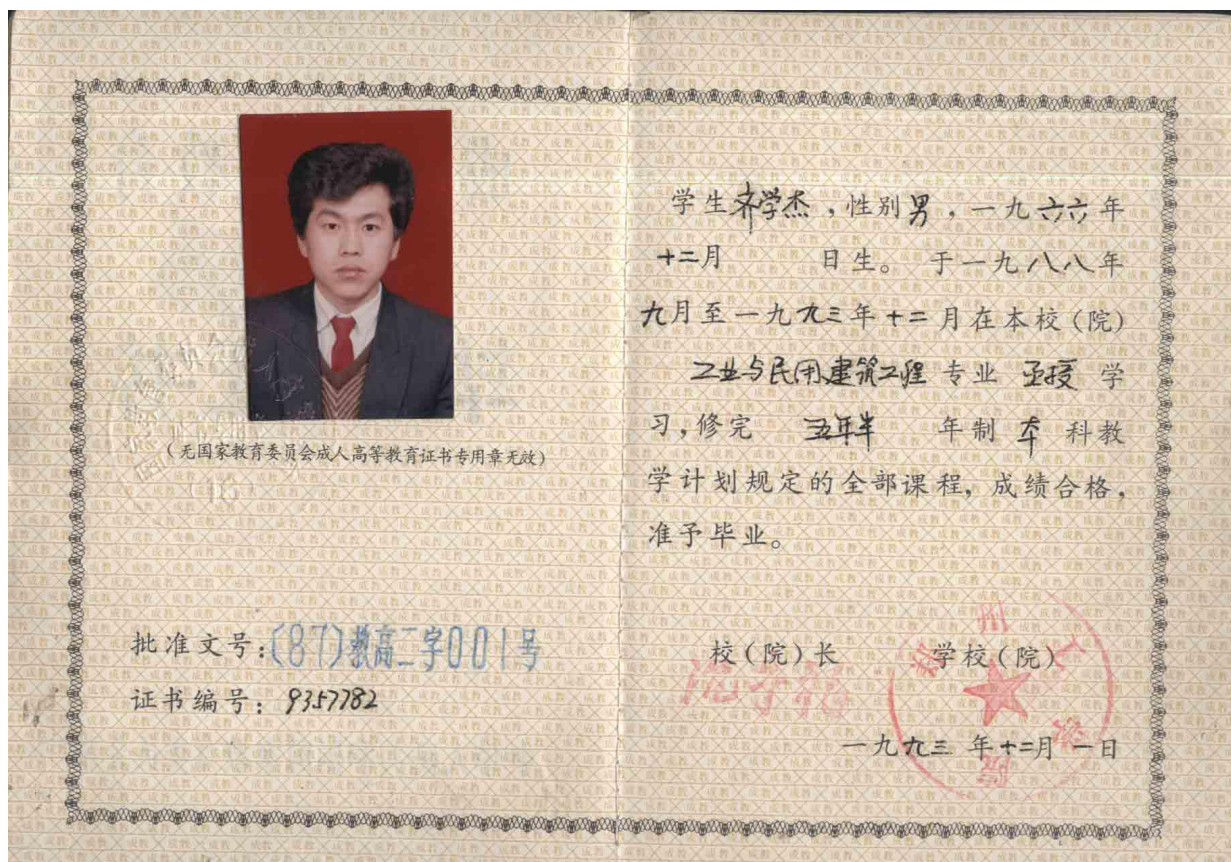 (无国家教育委员会成人高等教育证书专用章无效)
批准文号:(87)教高二字001号
证书编号: 9357782
学生齐学杰,性别男,一九六六年
十二月 日生。于一九八八年
九月至一九九三年十二月在本校(院)
工业与民用建筑工程 专业 函授 学
习,修完 五年半 年制 本 科教
学计划规定的全部课程,成绩合格,
准予毕业。
校(院)长 学校(院)
一九九三 年十二月 一日